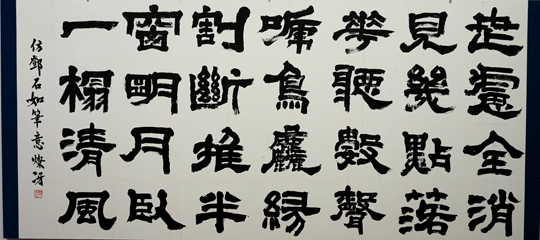 世慮全消
見幾點落
華聽數聲
啼鳥塵緣
割斷推半
窗明月臥
一榻清風
仿鄧石如筆意